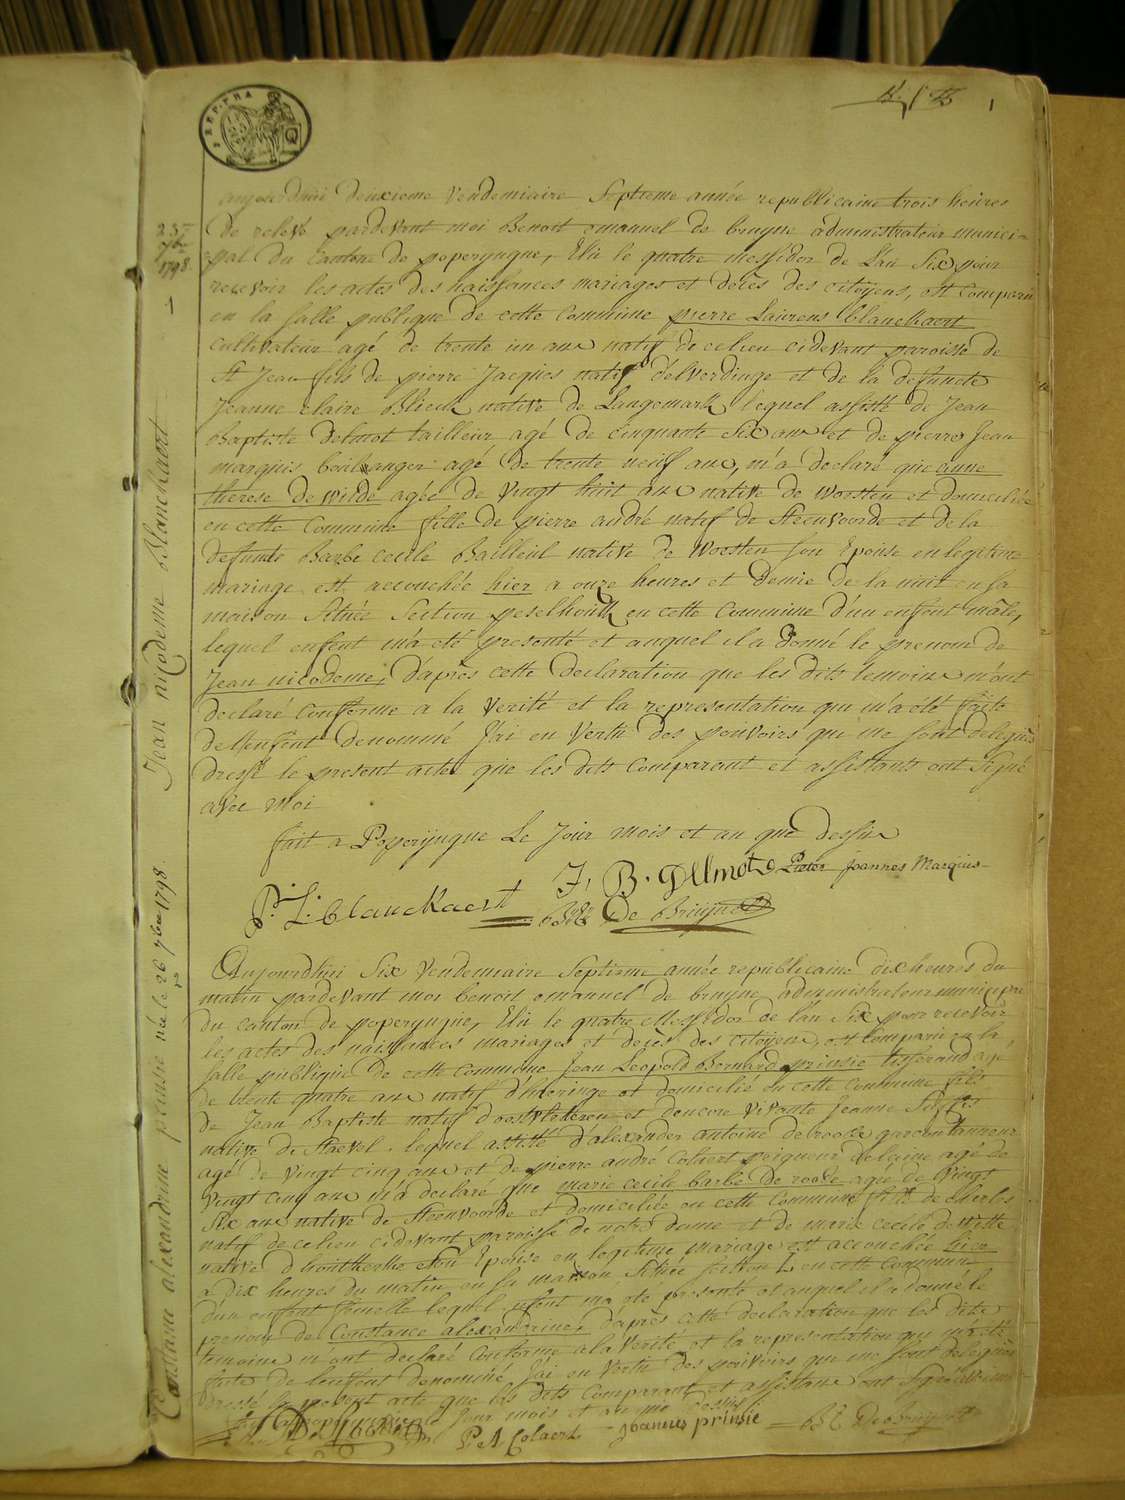 REP. FRA
1
aujourdhui deuxieme Vendemiaire Septieme année republicaine trois heires
de relevé pardevant moi Benoit emanuel de bruyne administrateur munici-
pal du Canton de poperyngue, Elu le quatre messidor de l'an Six pour
recevoir les actes des naissances mariages et decès des citoyens, est comparu
en la salle publique de cette Commune pierre Laurens blanckaert
Cultivateur agé de trente un ans natif de ce lieu cidevant paroisse de
St Jean fils de pierre Jacques natif d'elverdinge et de la defuncte
Jeanne claire Blieck native de Langemark lequel assisté de Jean
Baptiste Delmot tailleur agé de cinquante Six ans et de pierre Jean
marquis boulanger agé de trente neuf ans, m'a declaré que anne
therese de Wilde agée de Vingt huit ans native de Woesten et domiciliée
en cette Commune fille de pierre andré natif de Steenvoorde et de la
defunte Barbe cecile Bailleul native de Woesten son Epouse en legitime
mariage est accouchée hier a onze heures et demie de la nuit en sa
maison Située Section peselhoek en cette Commune d'un enfent mâle,
lequel enfent m'a eté presenté et auquel il a Donné le prenom de
Jean nicodeme, d'après cette declaration que les dits temoins m'ont
declaré Conforme a la Verité et la representation qui m'a eté faite
de l'enfent denommé J'ai en Vertu des pouvoirs qui me sont delegués
dressé le present acte que les dits Comparant et assistants ont Signé
avec Moi
fait a Poperyngue Le Jour mois et an que dessus
J. B. Delmot Pieter Joannes Marquis
P: L: blanckaert De Bruyne
23
7bre
1798
1
Jean nicodeme Blanckaert
Aujourdhui Six Vendemiaire Septieme année republicaine dix heures du
matin pardevant moi benoit emanuel de bruyne administrateur municipal
du canton de poperyngue, Elu le quatre Messidor de l'an Six pour recevoir
les actes des naissances mariages et decès des citoyens, est Comparu en la
salle publique de cette Commune Jean Leopold Bernard prinsie tisserand agé
de trente quatre ans natif d'haeringe et domicilié en cette commune fils
de Jean Baptiste natif d'oostvleteren et d'encore Vivante Jeanne
native de Stavel. lequel assisté d'alexander antoine de roode garcon tanneur
agé de Vingt cinq ans et de pierre andré Colaert peigneur de laine agé de
Vingt cinq ans m'a declaré que marie cecile barbe de roode agée de Vingt
Six ans native de Steenvoorde et domiciliée en cette Commune fille de
natif de ce lieu cidevant paroisse de notre dame et de marie cecile de Witte
native d'houtkerke Son Epouse en legitime mariage est accouchée hier
a dix heures du matin en sa maison Située Section L en cette Commune
d'un enfent femelle lequel enfent m'a eté presenté et auquel il a donné le
prenom de Constance alexandrine, d'après cette declaration que les dits
temoins m'ont declaré Conforme a la Verité et la representation qui m'a eté
faite de l'enfent denommé J'ai en Vertu des pouvoirs qui me sont delegués
dressé le present acte que les dits Comparant et assistans ont Signé avec moi
Jour mois et an que dessus
P A Colaert Joannes prinsie De Bruyne
Constance alexandrine prinsie née le 26 7bre 1798.